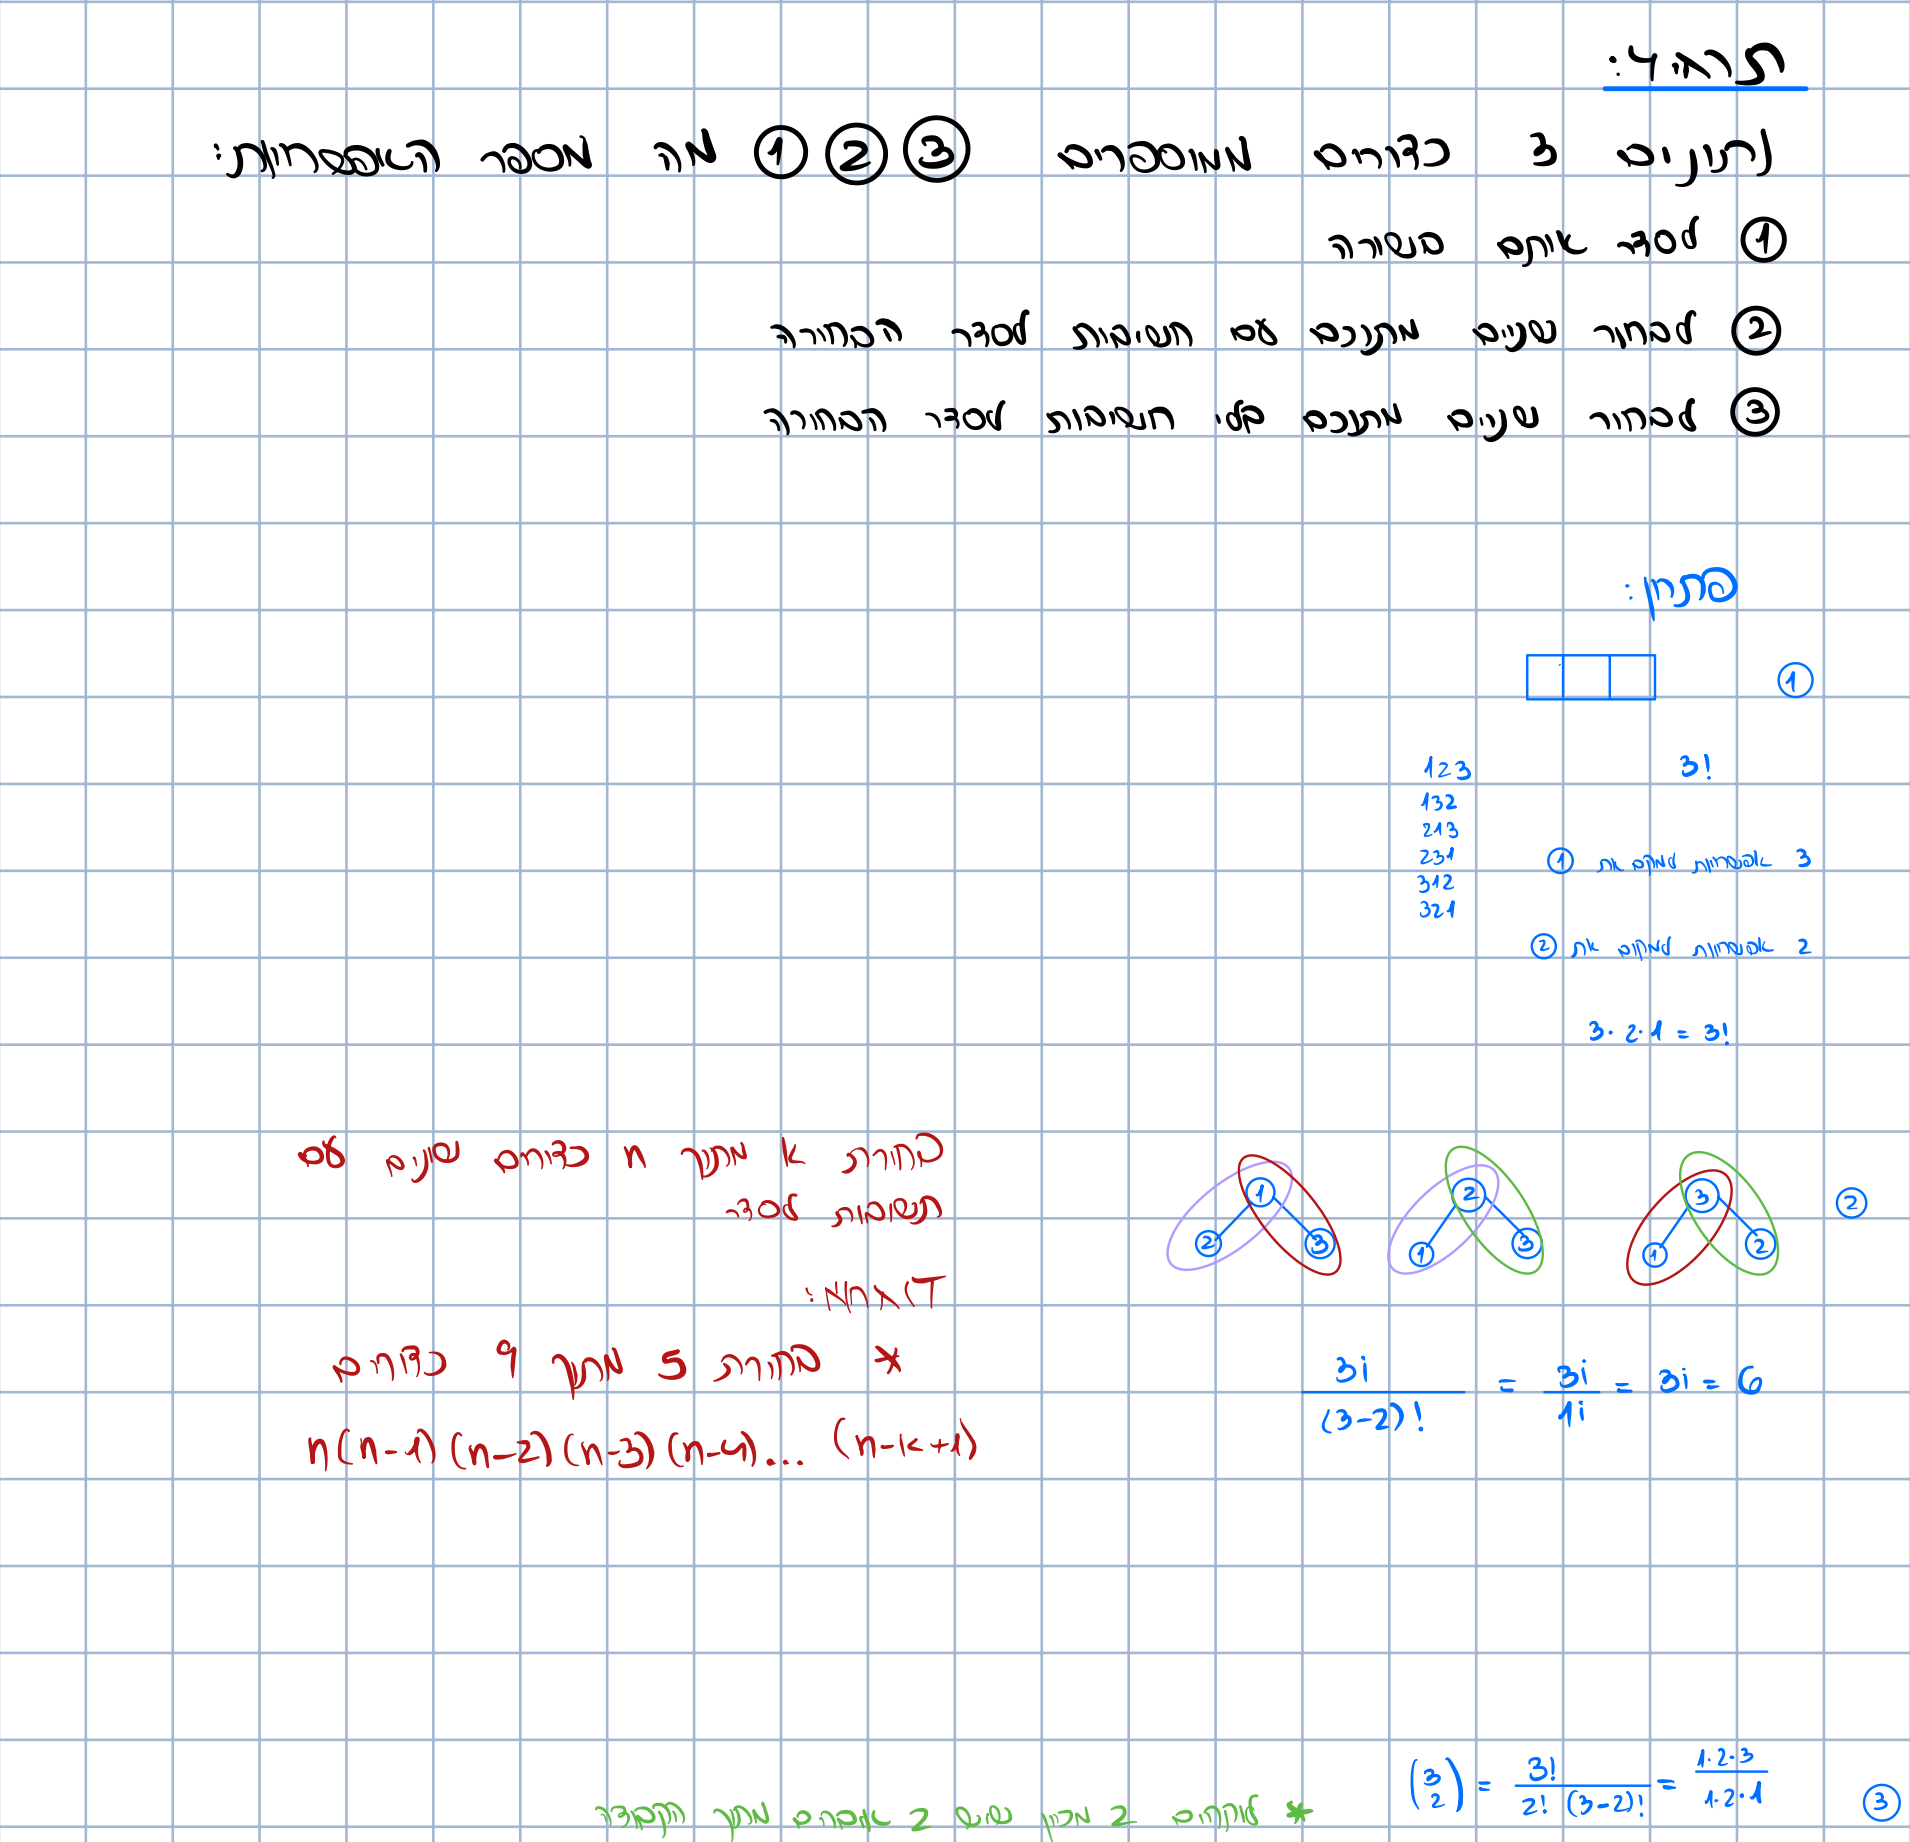 תרגיל 4:
נתונים 3 כדורים ממוספרים 1 2 3 מה מספר האפשרויות:
1 לסדר אותם בשורה
2 לבחור שניים מתוכם עם חשיבות לסדר הבחירה
3 לבחור שניים מתוכם בלי חשיבות לסדר הבחירה
פתרון:
1
3!
123
132
213
231
312
321
3 אפשרויות למקם את 1
2 אפשרויות למקום את 2
3·2·1 = 3!
2
3 1 2
2 1 3
1 2 3
3! / (3-2)! = 3! / 1! = 3! = 6
בחירת k מתוך n כדורים שונים עם
חשיבות לסדר
דוגמא:
* בחירת 5 מתוך 9 כדורים
n(n-1)(n-2)(n-3)(n-4)... (n-k+1)
3
(3 2) = 3! / 2! (3-2)! = 1·2·3 / 1·2·1
* לוקחים 2 מכיון שיש 2 אברים מתוך הקבוצה